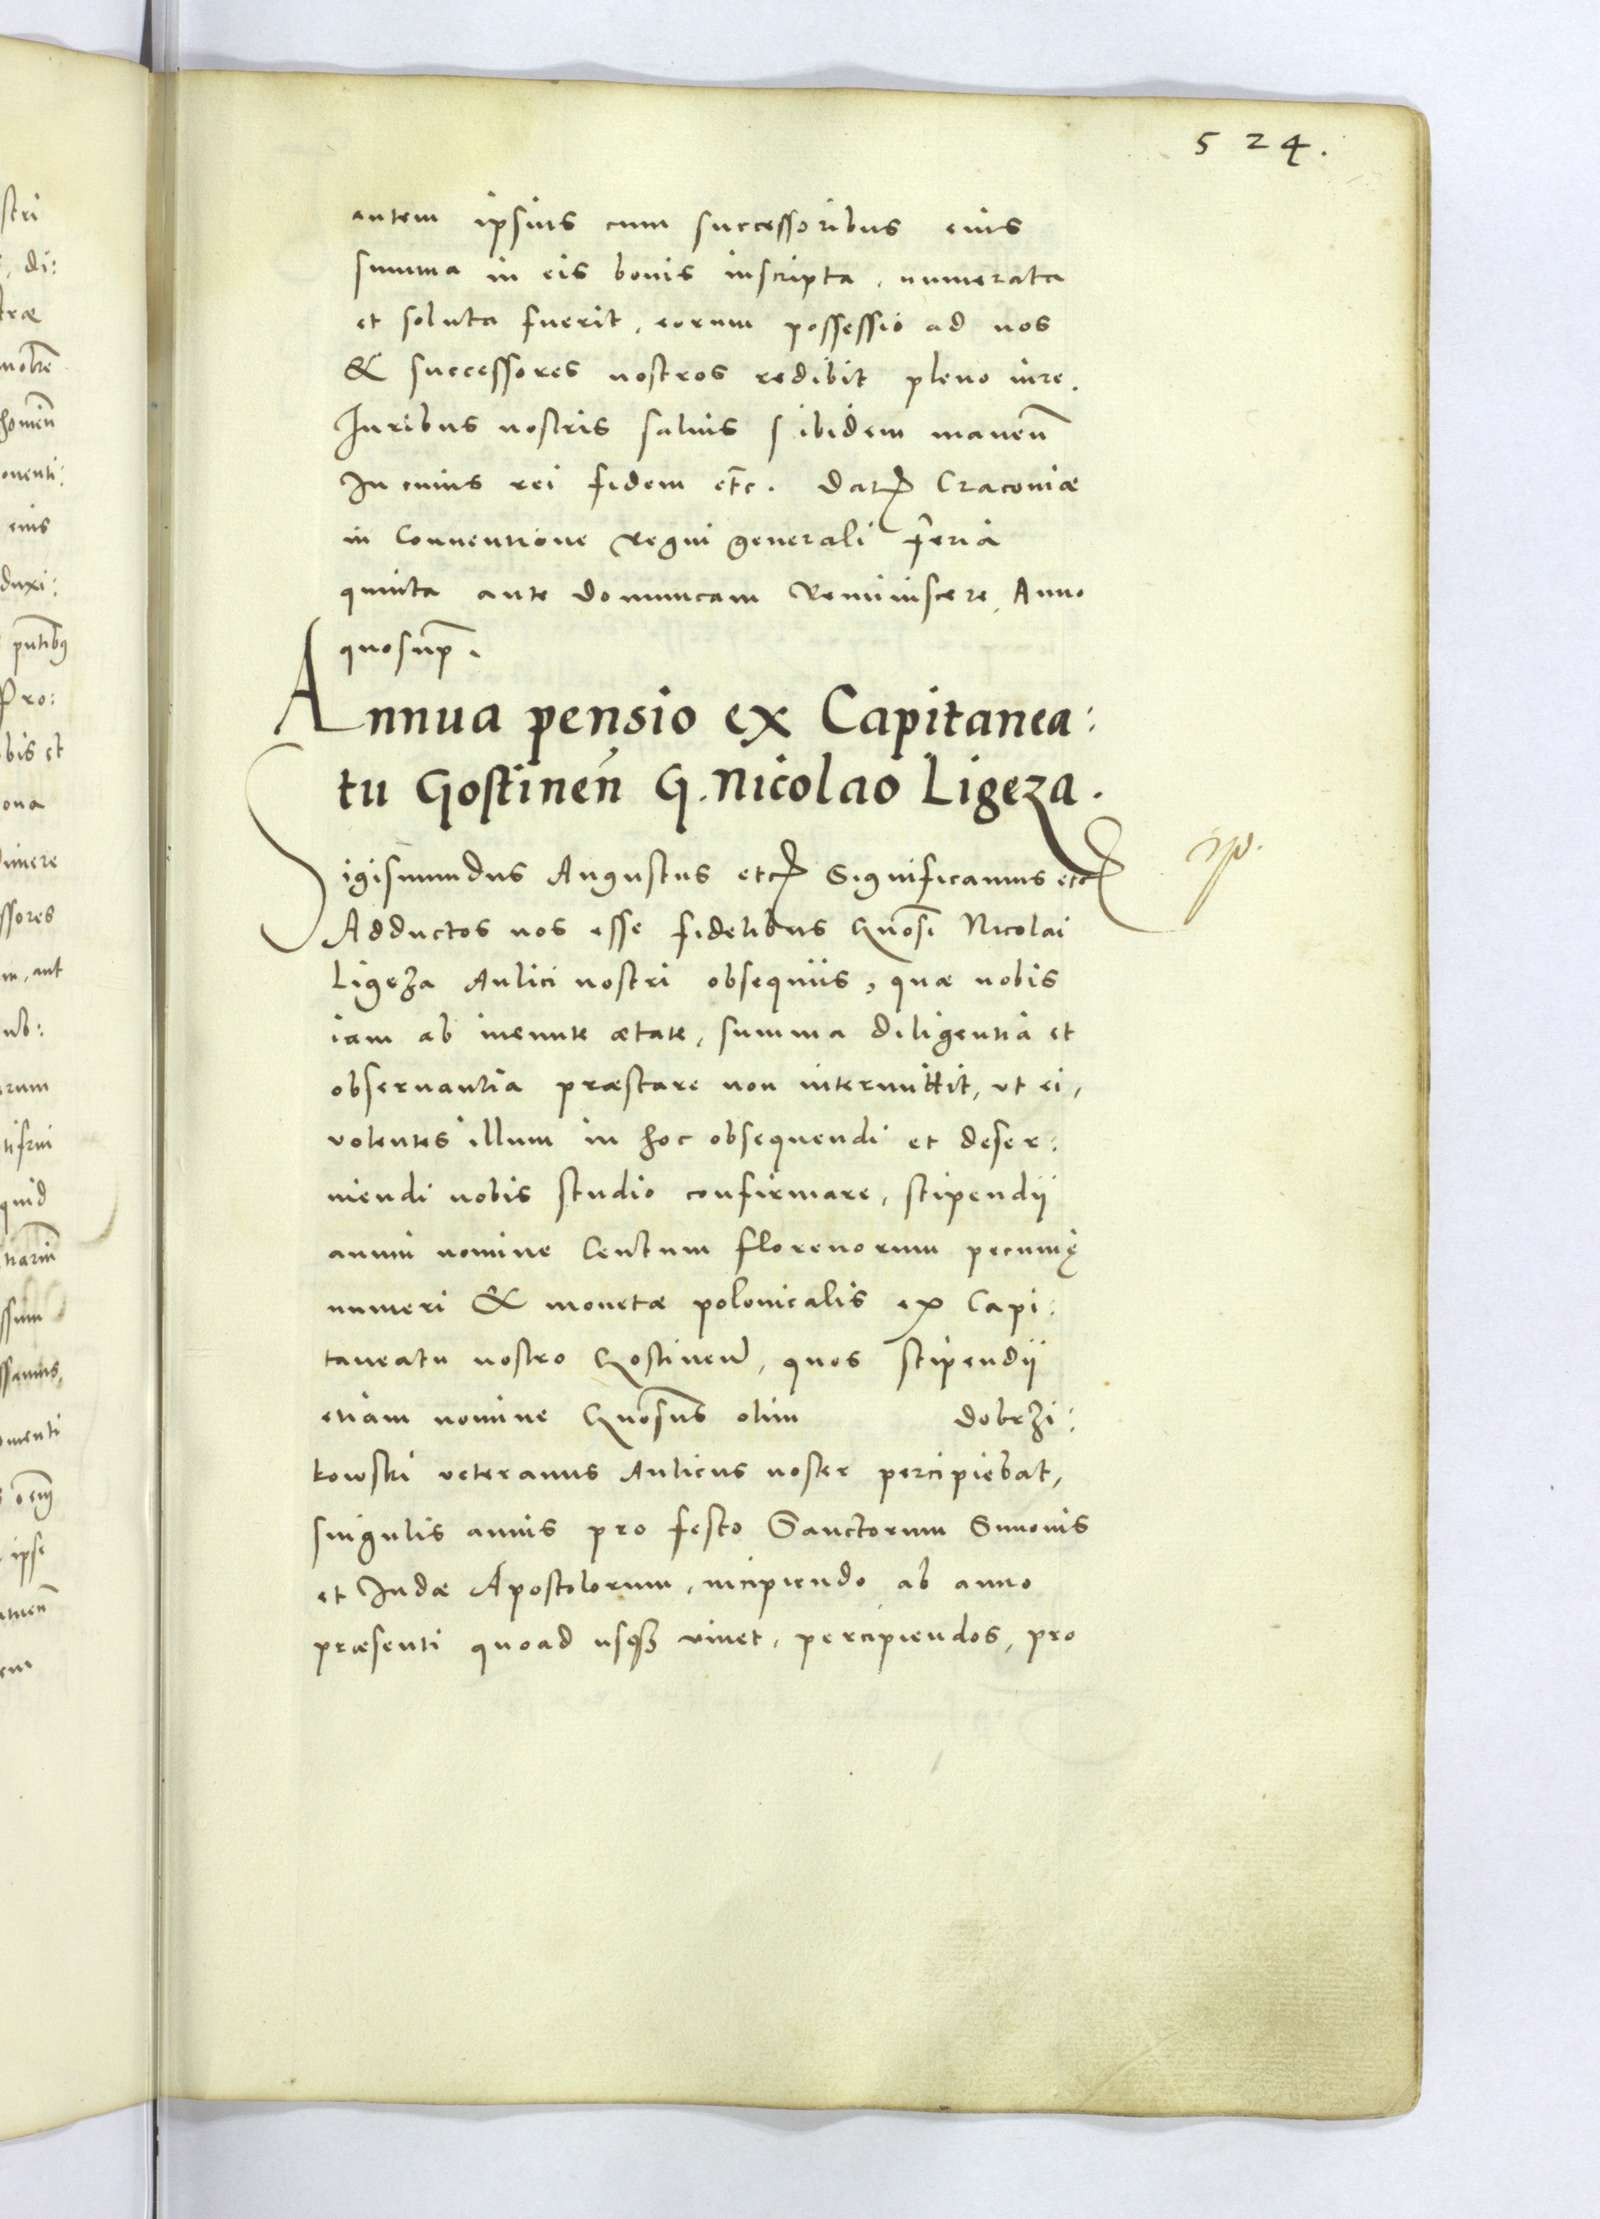 524.
autem ipsius cum successoribus eius
summa in eis bonis inscripta, numerata
et soluta fuerit, eorum possessio ad nos
& successores nostros redibit pleno iure.
Iuribus nostris salvis ibidem manen̄
In cuius rei fidem etc̄. Dat Cracoviæ
in Conventione Regni generali feria
quinta ante dominicam Reminiscere, Anno
quo sup̄.
Annua pensio ex Capitanea:
tu Gostinen̄ G. Nicolao Ligeza.
Sigismundus Augustus etc Significamus etc
Adductos nos esse fidelibus Gn̄osi Nicolai
Ligeza Aulici nostri obsequiis, quæ nobis
iam ab ineunte ætate, summa diligentia et
observantia præstare non intermittit, ut ei,
volentes illum in hoc obsequendi et deser:
viendi nobis studio confirmare, stipendij
annui nomine Centum florenorum pecunię
numeri & monetæ polonicalis ex Capi:
taneatu nostro Gostinen̄, quos stipendij
etiam nomine Gn̄osus olim Dobrzi:
kowski veteranus Aulicus noster percipiebat,
singulis annis pro festo Sanctorum Simonis
et Iudæ Apostolorum, incipiendo ab anno
præsenti quoad usqȝ vivet, percipiendos, pro